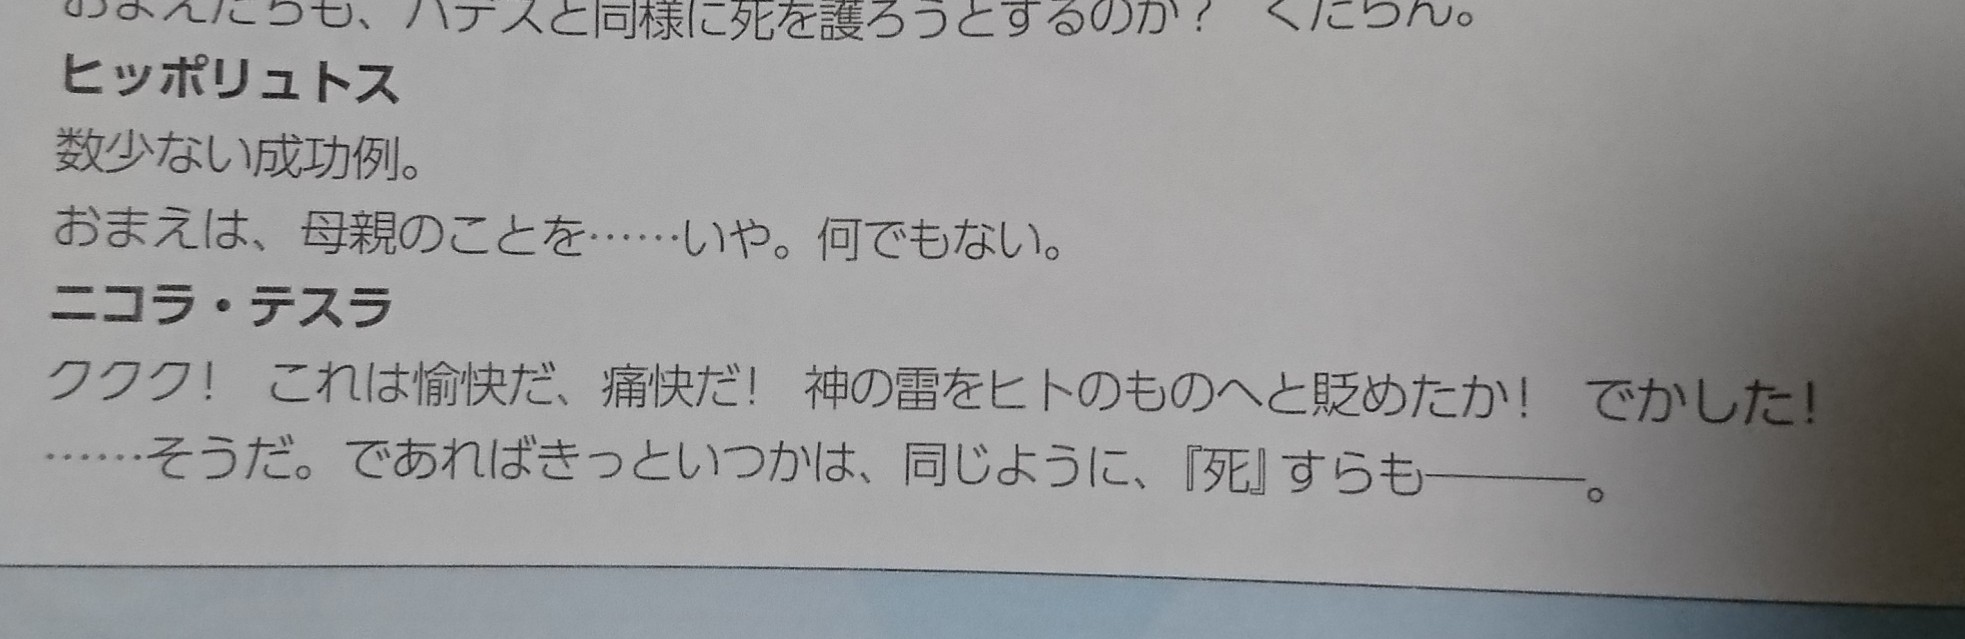 おまえたちも、ハデスと同様に死を護ろうとするのか？　くだらん。
ヒッポリュトス
数少ない成功例。
おまえは、母親のことを……いや。何でもない。
ニコラ・テスラ
ククク！　これは愉快だ、痛快だ！　神の雷をヒトのものへと貶めたか！　でかした！
……そうだ。であればきっといつかは、同じように、『死』すらも―――。